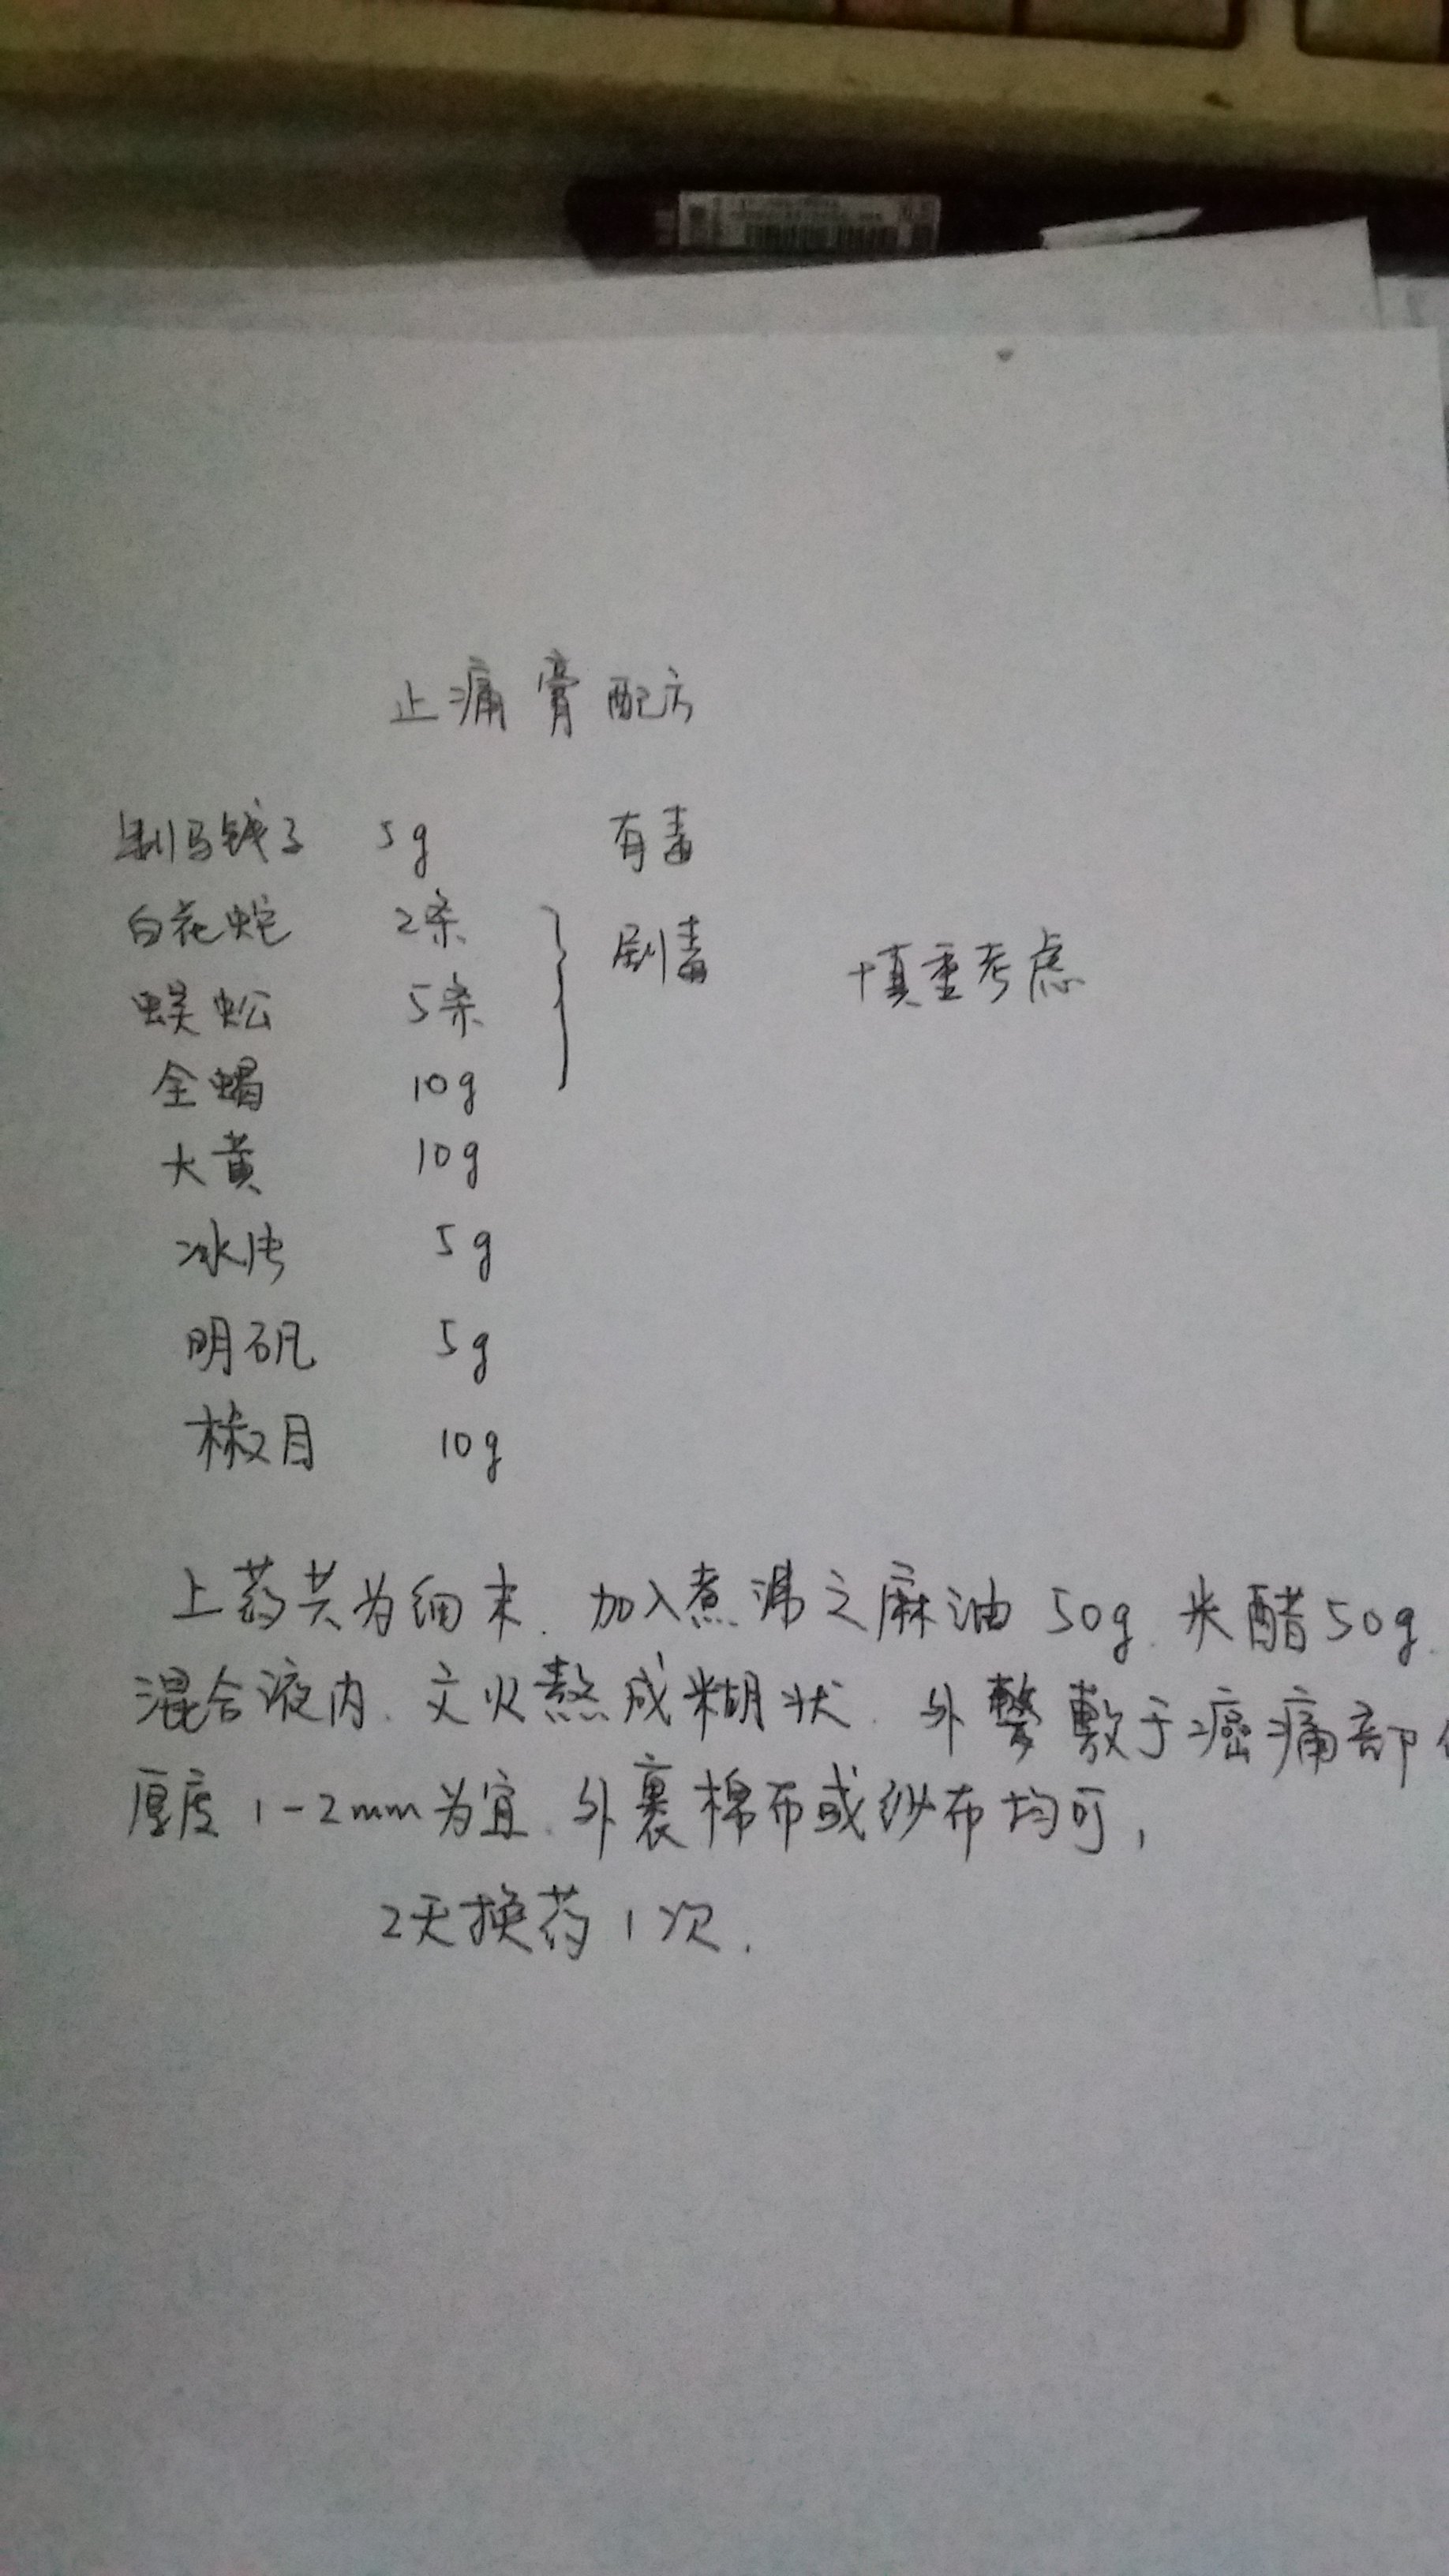 止痛膏配方
制马钱子 5g 有毒
白花蛇 2条 剧毒 慎重考虑
蜈蚣 5条
全蝎 10g
大黄 10g
冰片 5g
明矾 5g
椒目 10g
上药共为细末. 加入煮沸之麻油 50g. 米醋50g.
混合液内. 文火熬成糊状. 外敷于癌痛部
厚度 1-2mm为宜. 外裹棉布或纱布均可,
2天换药1次.